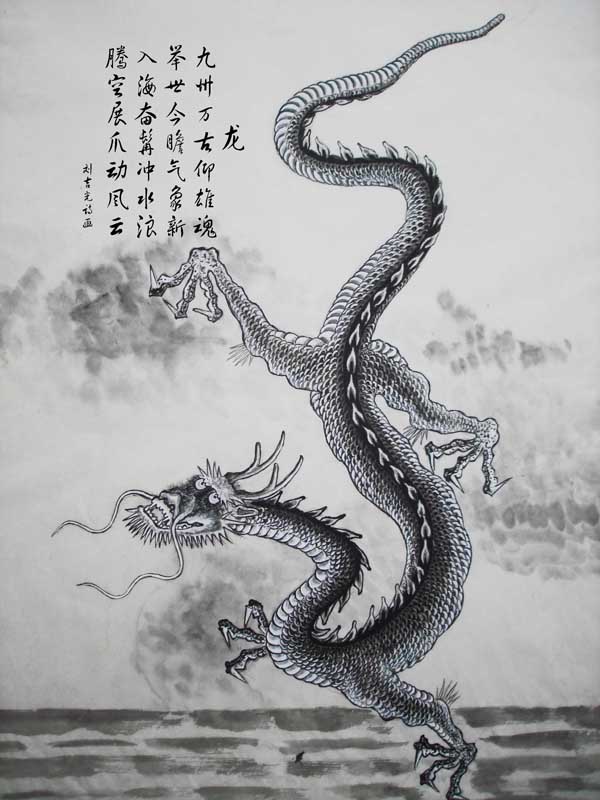 龙
九州万古仰雄魂
举世今瞻气象新
入海奋髯冲水浪
腾空展爪动风云
刘吉光诗画